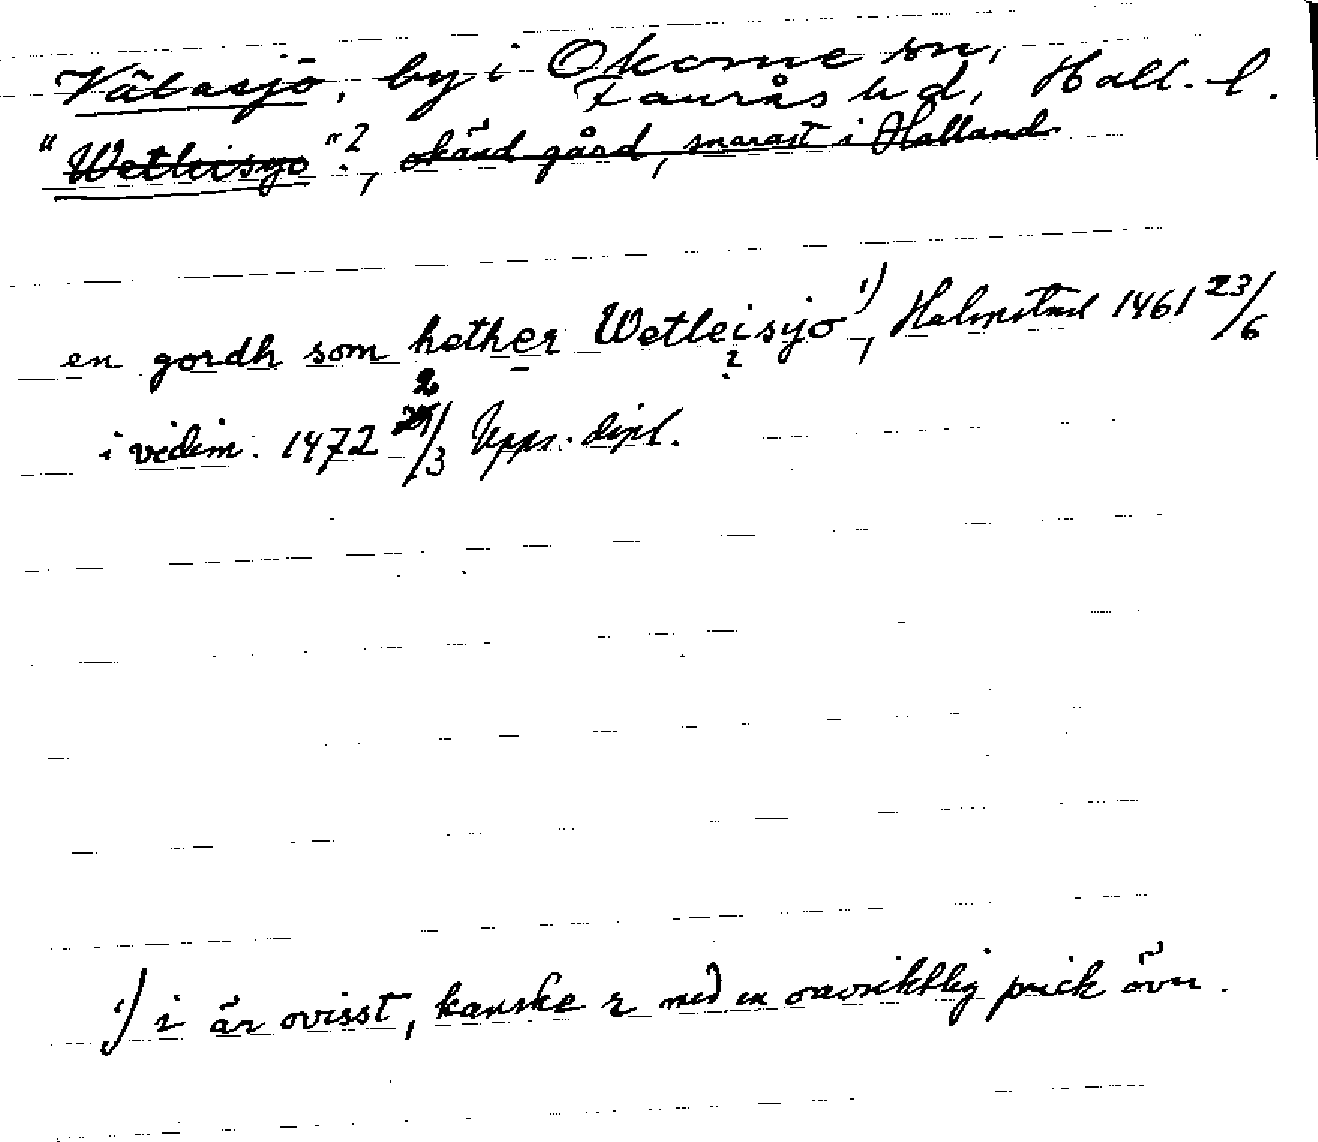 Välasjö, by i Okome sn,
Faurås hd, Hall. l.
"Wetleisyo"?, okänd gård, snarast i Halland
en gordh som hether Wetleisyo¹⁾, Halmstad 1461 23/6
2
i vidim. 1472 2/3 Upps. dipl.
¹⁾ i är ovisst, kanske r med en oavsiktlig prick över.